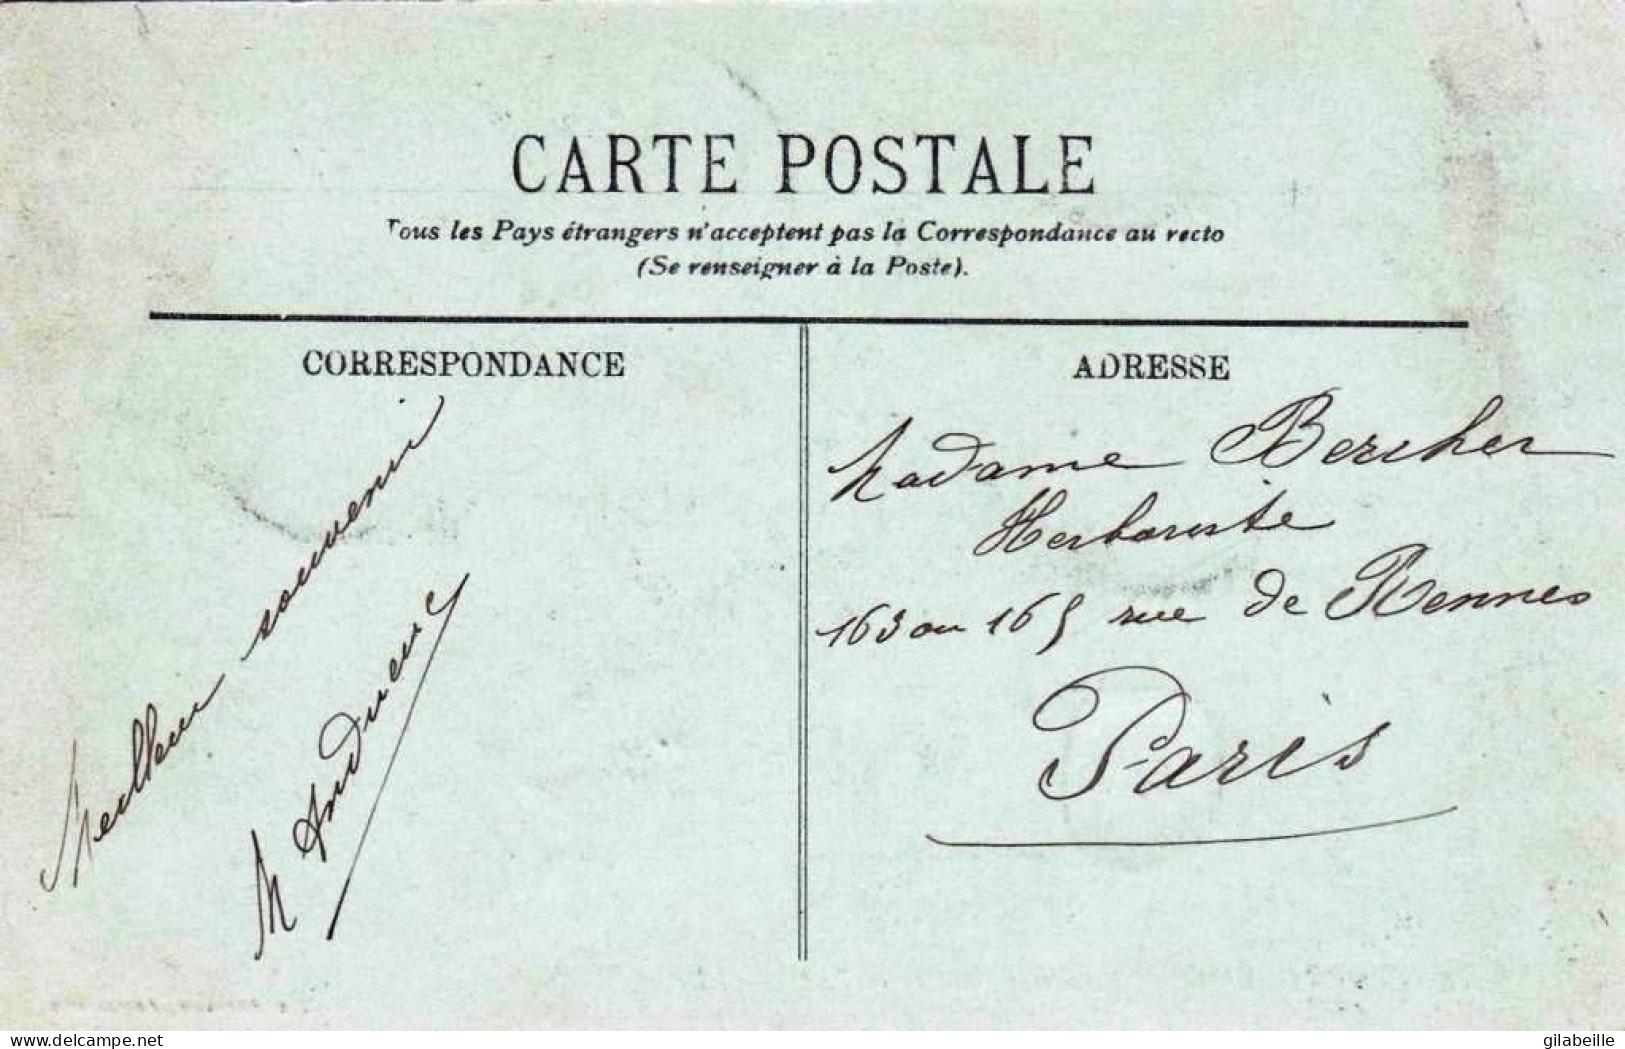 CARTE POSTALE
Tous les Pays étrangers n'acceptent pas la Correspondance au recto
(Se renseigner à la Poste).
CORRESPONDANCE
Meilleur souvenir
M
ADRESSE
Madame Bercher
Herboriste
163 ou 165 rue de Rennes
Paris
delcampe.net
gilabeille